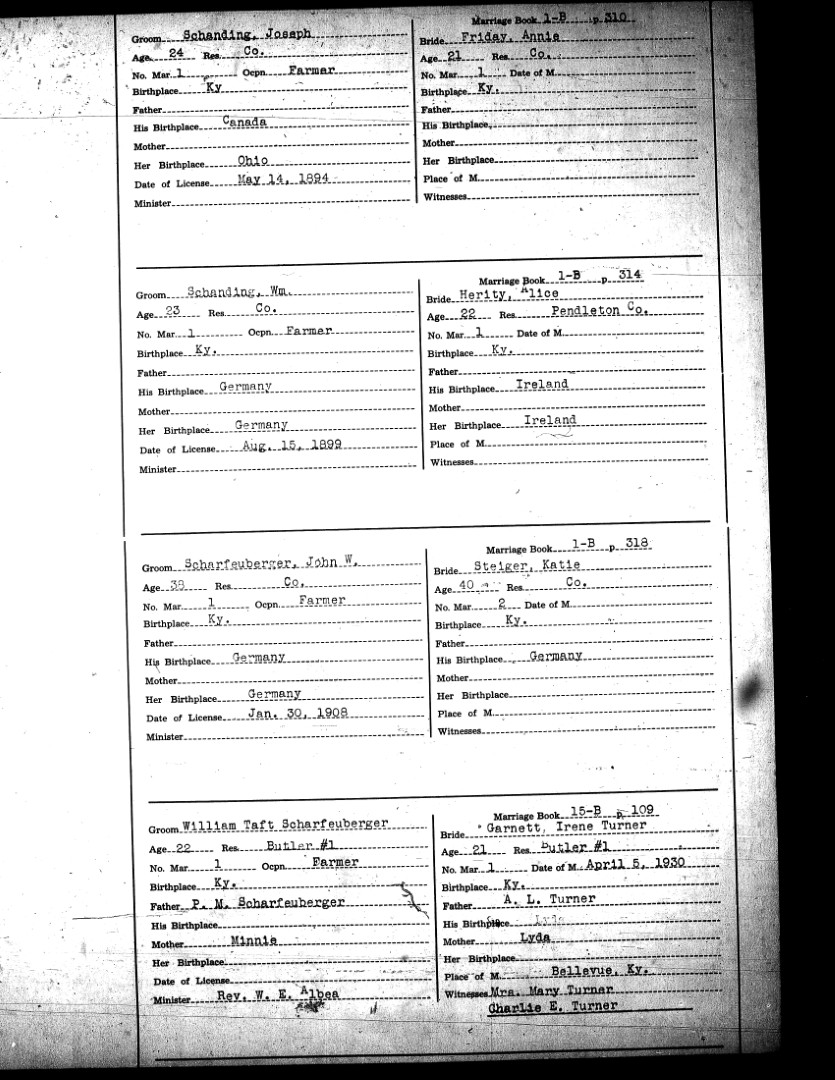 Groom Schanding, Joseph
Age 24 Res. Co.
No. Mar. 1 Ocpn. Farmer
Birthplace Ky
Father
His Birthplace Canada
Mother
Her Birthplace Ohio
Date of License May 14, 1894
Minister
Marriage Book 1-B p. 310
Bride Friday, Annie
Age 21 Res. Co.
No. Mar. 1 Date of M.
Birthplace Ky.
Father
His Birthplace
Mother
Her Birthplace
Place of M.
Witnesses
Groom Schanding, Wm.
Age 23 Res. Co.
No. Mar. 1 Ocpn. Farmer
Birthplace Ky.
Father
His Birthplace Germany
Mother
Her Birthplace Germany
Date of License Aug. 15, 1899
Minister
Marriage Book 1-B p. 314
Bride Herity, Alice
Age 22 Res. Pendleton Co.
No. Mar. 1 Date of M.
Birthplace Ky.
Father
His Birthplace Ireland
Mother
Her Birthplace Ireland
Place of M.
Witnesses
Groom Scharfeuberger, John W.
Age 38 Res. Co.
No. Mar. 1 Ocpn. Farmer
Birthplace Ky.
Father
His Birthplace Germany
Mother
Her Birthplace Germany
Date of License Jan. 30, 1908
Minister
Marriage Book 1-B p. 318
Bride Steiger, Katie
Age 40 Res. Co.
No. Mar. 2 Date of M.
Birthplace Ky.
Father
His Birthplace Germany
Mother
Her Birthplace
Place of M.
Witnesses
Groom William Taft Scharfeuberger
Age 22 Res. Butler #1
No. Mar. 1 Ocpn. Farmer
Birthplace Ky.
Father P. M. Scharfeuberger
His Birthplace
Mother Minnie
Her Birthplace
Date of License
Minister Rev. W. E. Albea
Marriage Book 15-B p. 109
Bride Garnett, Irene Turner
Age 21 Res. Butler #1
No. Mar. 1 Date of M. April 5, 1930
Birthplace Ky.
Father A. L. Turner
His Birthplace Lyda
Mother Lyda
Her Birthplace
Place of M. Bellevue, Ky.
Witnesses Mrs. Mary Turner
Charlie E. Turner